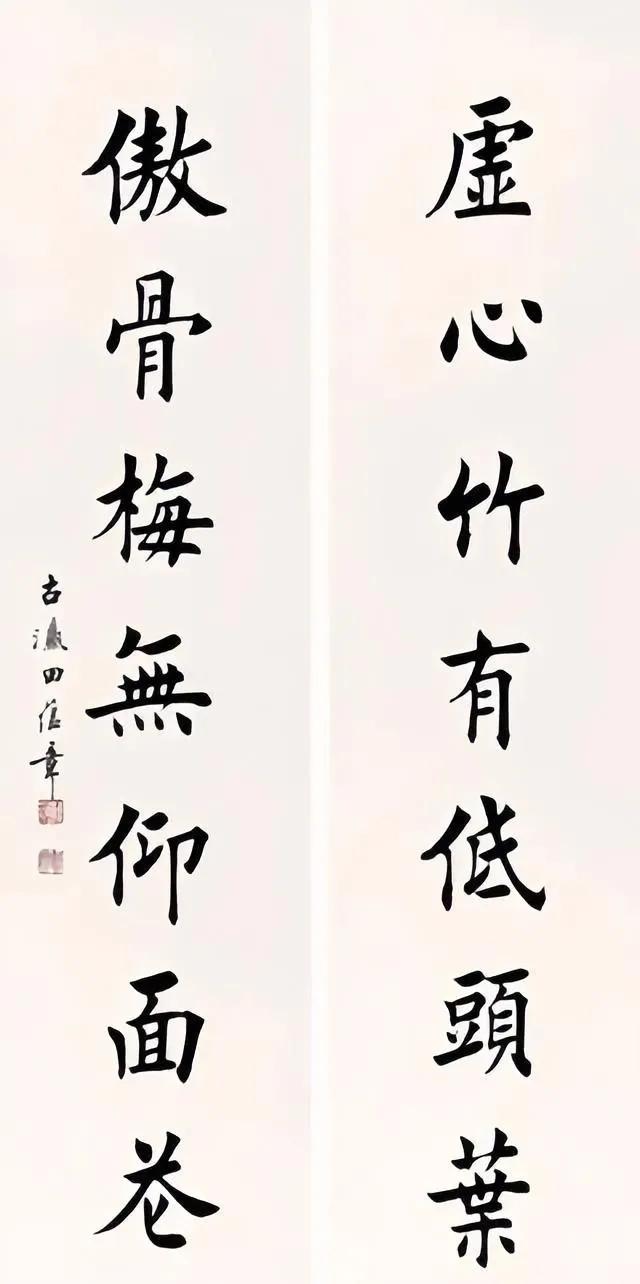 虛心竹有低頭葉
傲骨梅無仰面花
古田章